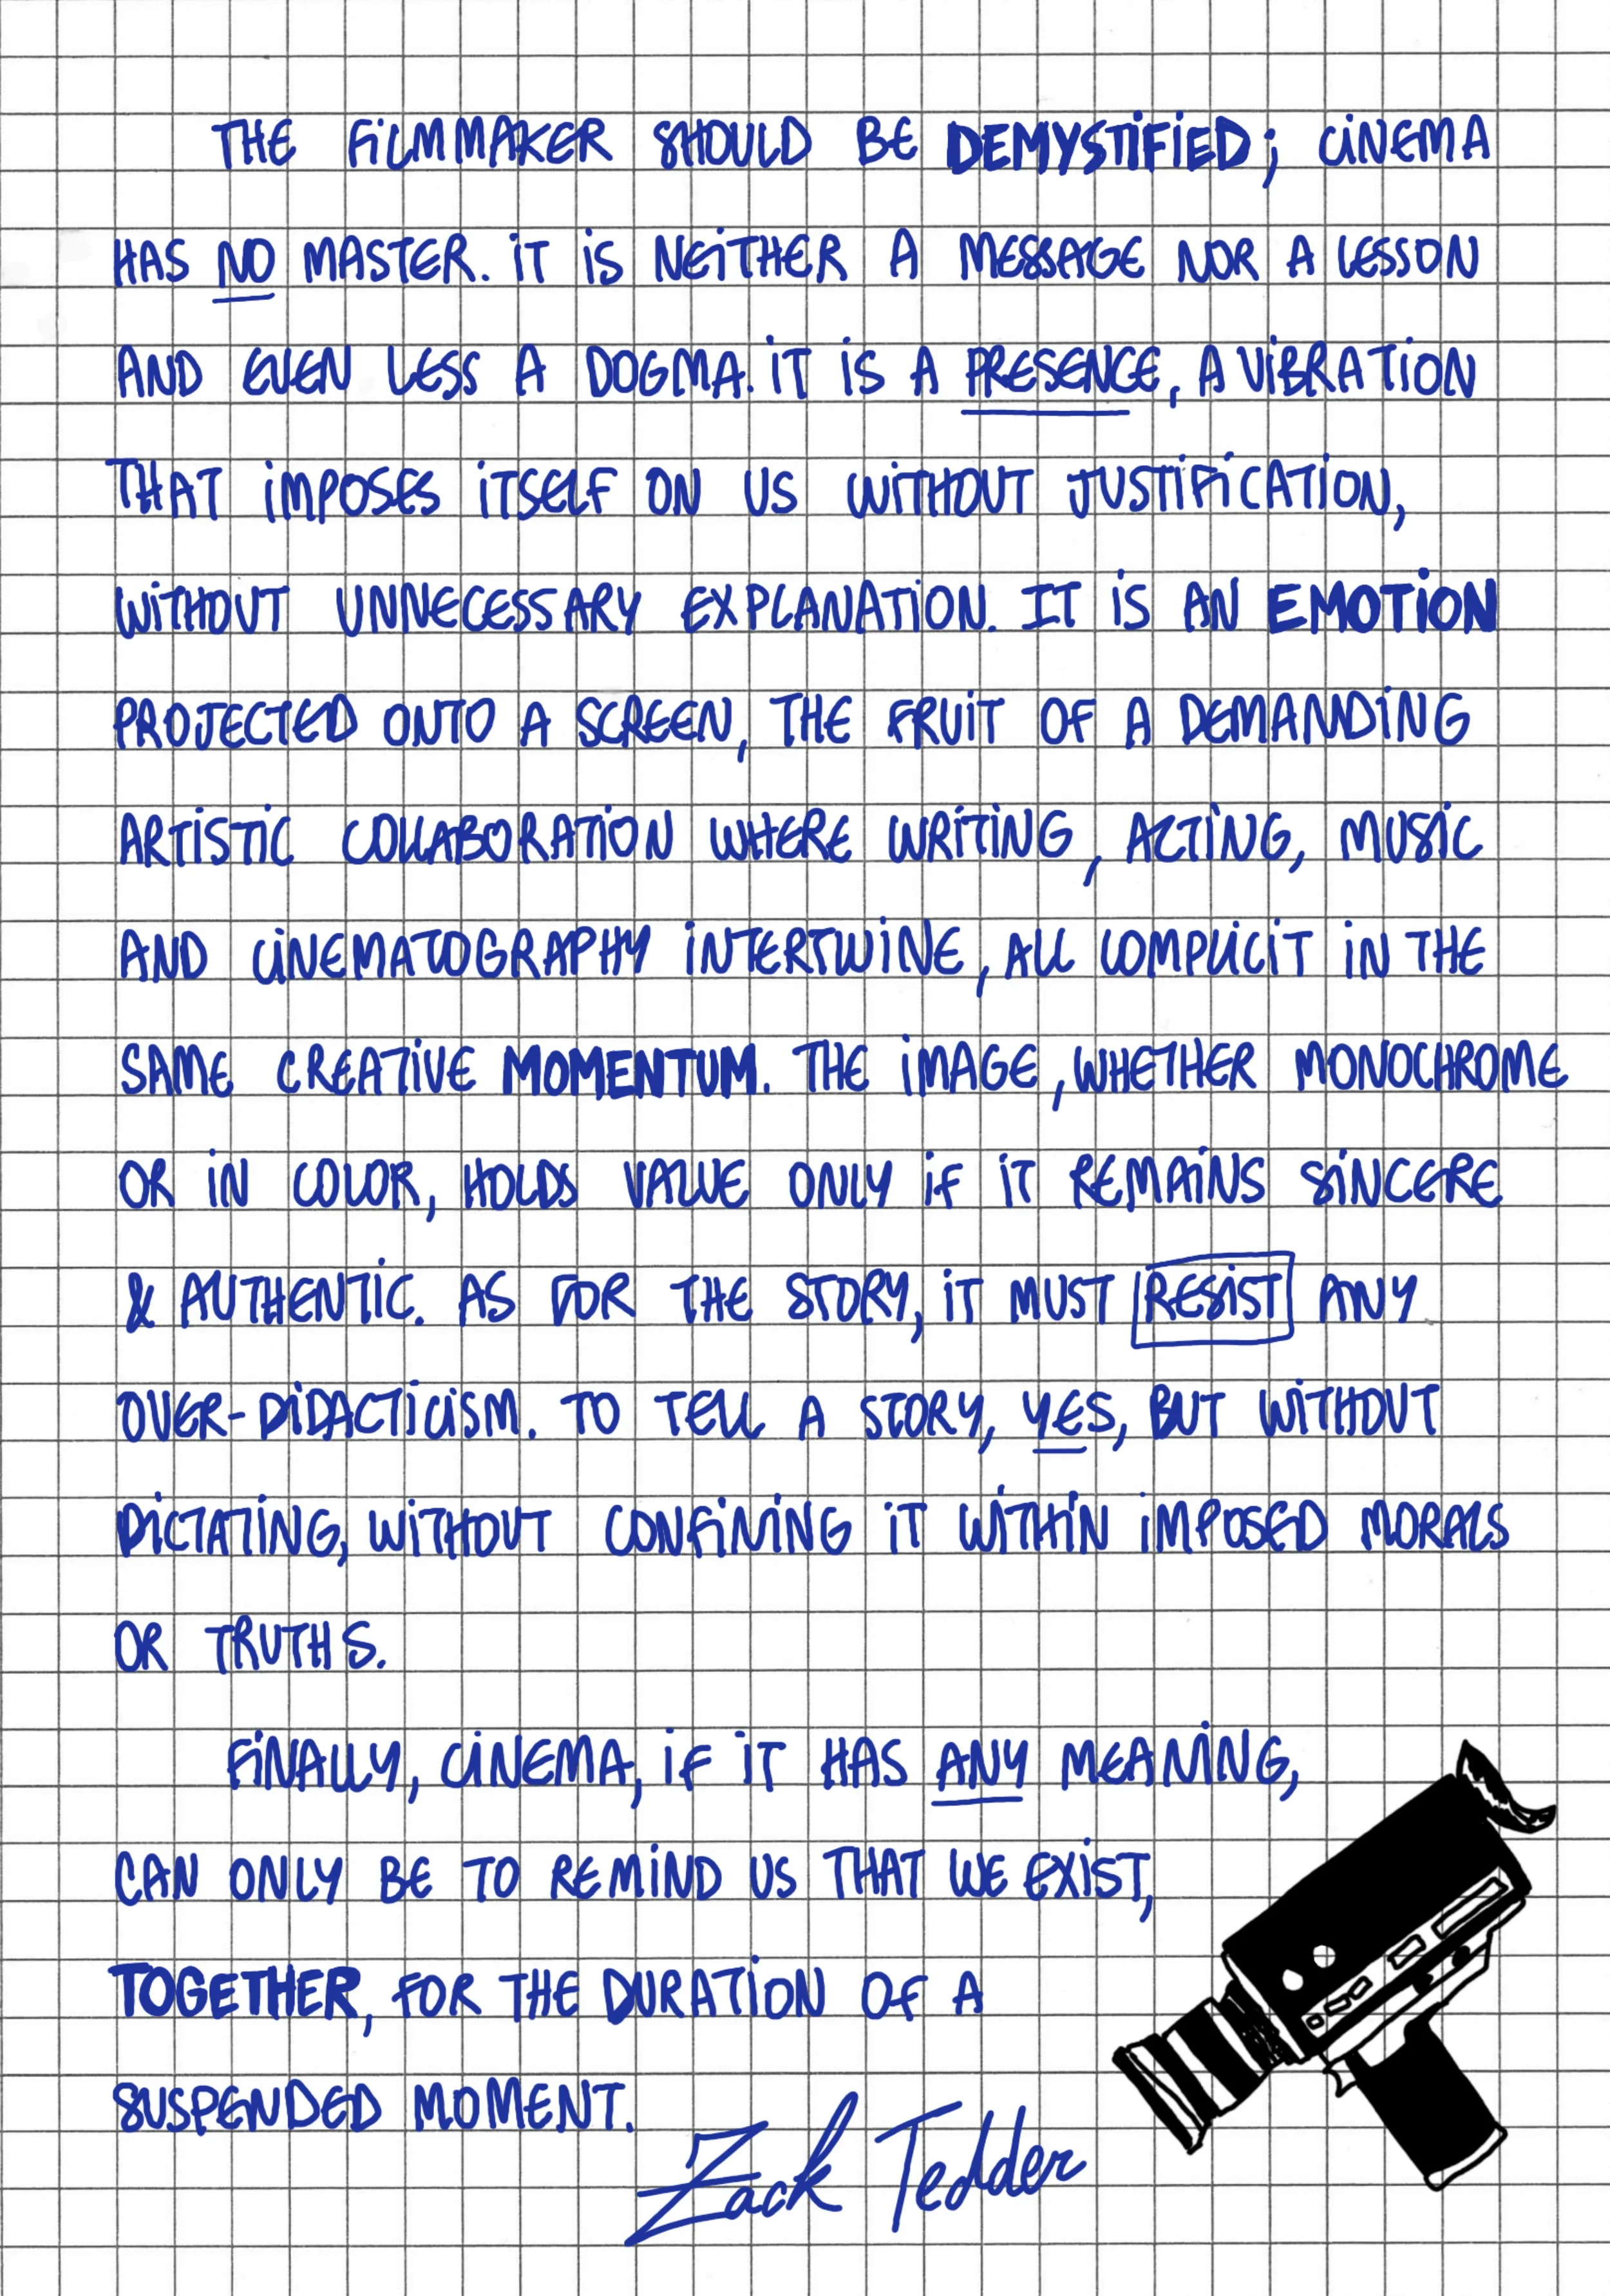 THE FILMMAKER SHOULD BE DEMYSTIFIED; CINEMA
HAS NO MASTER. IT IS NEITHER A MESSAGE NOR A LESSON
AND EVEN LESS A DOGMA. IT IS A PRESENCE, A VIBRATION
THAT IMPOSES ITSELF ON US WITHOUT JUSTIFICATION,
WITHOUT UNNECESSARY EXPLANATION. IT IS AN EMOTION
PROJECTED ONTO A SCREEN, THE FRUIT OF A DEMANDING
ARTISTIC COLLABORATION WHERE WRITING, ACTING, MUSIC
AND CINEMATOGRAPHY INTERTWINE, ALL COMPLICIT IN THE
SAME CREATIVE MOMENTUM. THE IMAGE, WHETHER MONOCHROME
OR IN COLOR, HOLDS VALUE ONLY IF IT REMAINS SINCERE
& AUTHENTIC. AS FOR THE STORY, IT MUST RESIST ANY
OVER-DIDACTICISM. TO TELL A STORY, YES, BUT WITHOUT
DICTATING, WITHOUT CONFINING IT WITHIN IMPOSED MORALS
OR TRUTHS.
FINALLY, CINEMA, IF IT HAS ANY MEANING,
CAN ONLY BE TO REMIND US THAT WE EXIST,
TOGETHER, FOR THE DURATION OF A
SUSPENDED MOMENT.
Zack Tedder